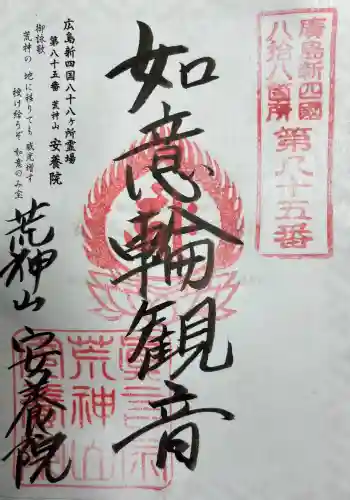 廣島新四國
八拾八箇所 第八十五番
如意輪観音
広島新四国八十八ヶ所霊場
第八十五番 荒神山 安養院
御詠歌
荒神の 地に移りても 威光増す
授け給うぞ 如意のみ宝
荒神山 安養院